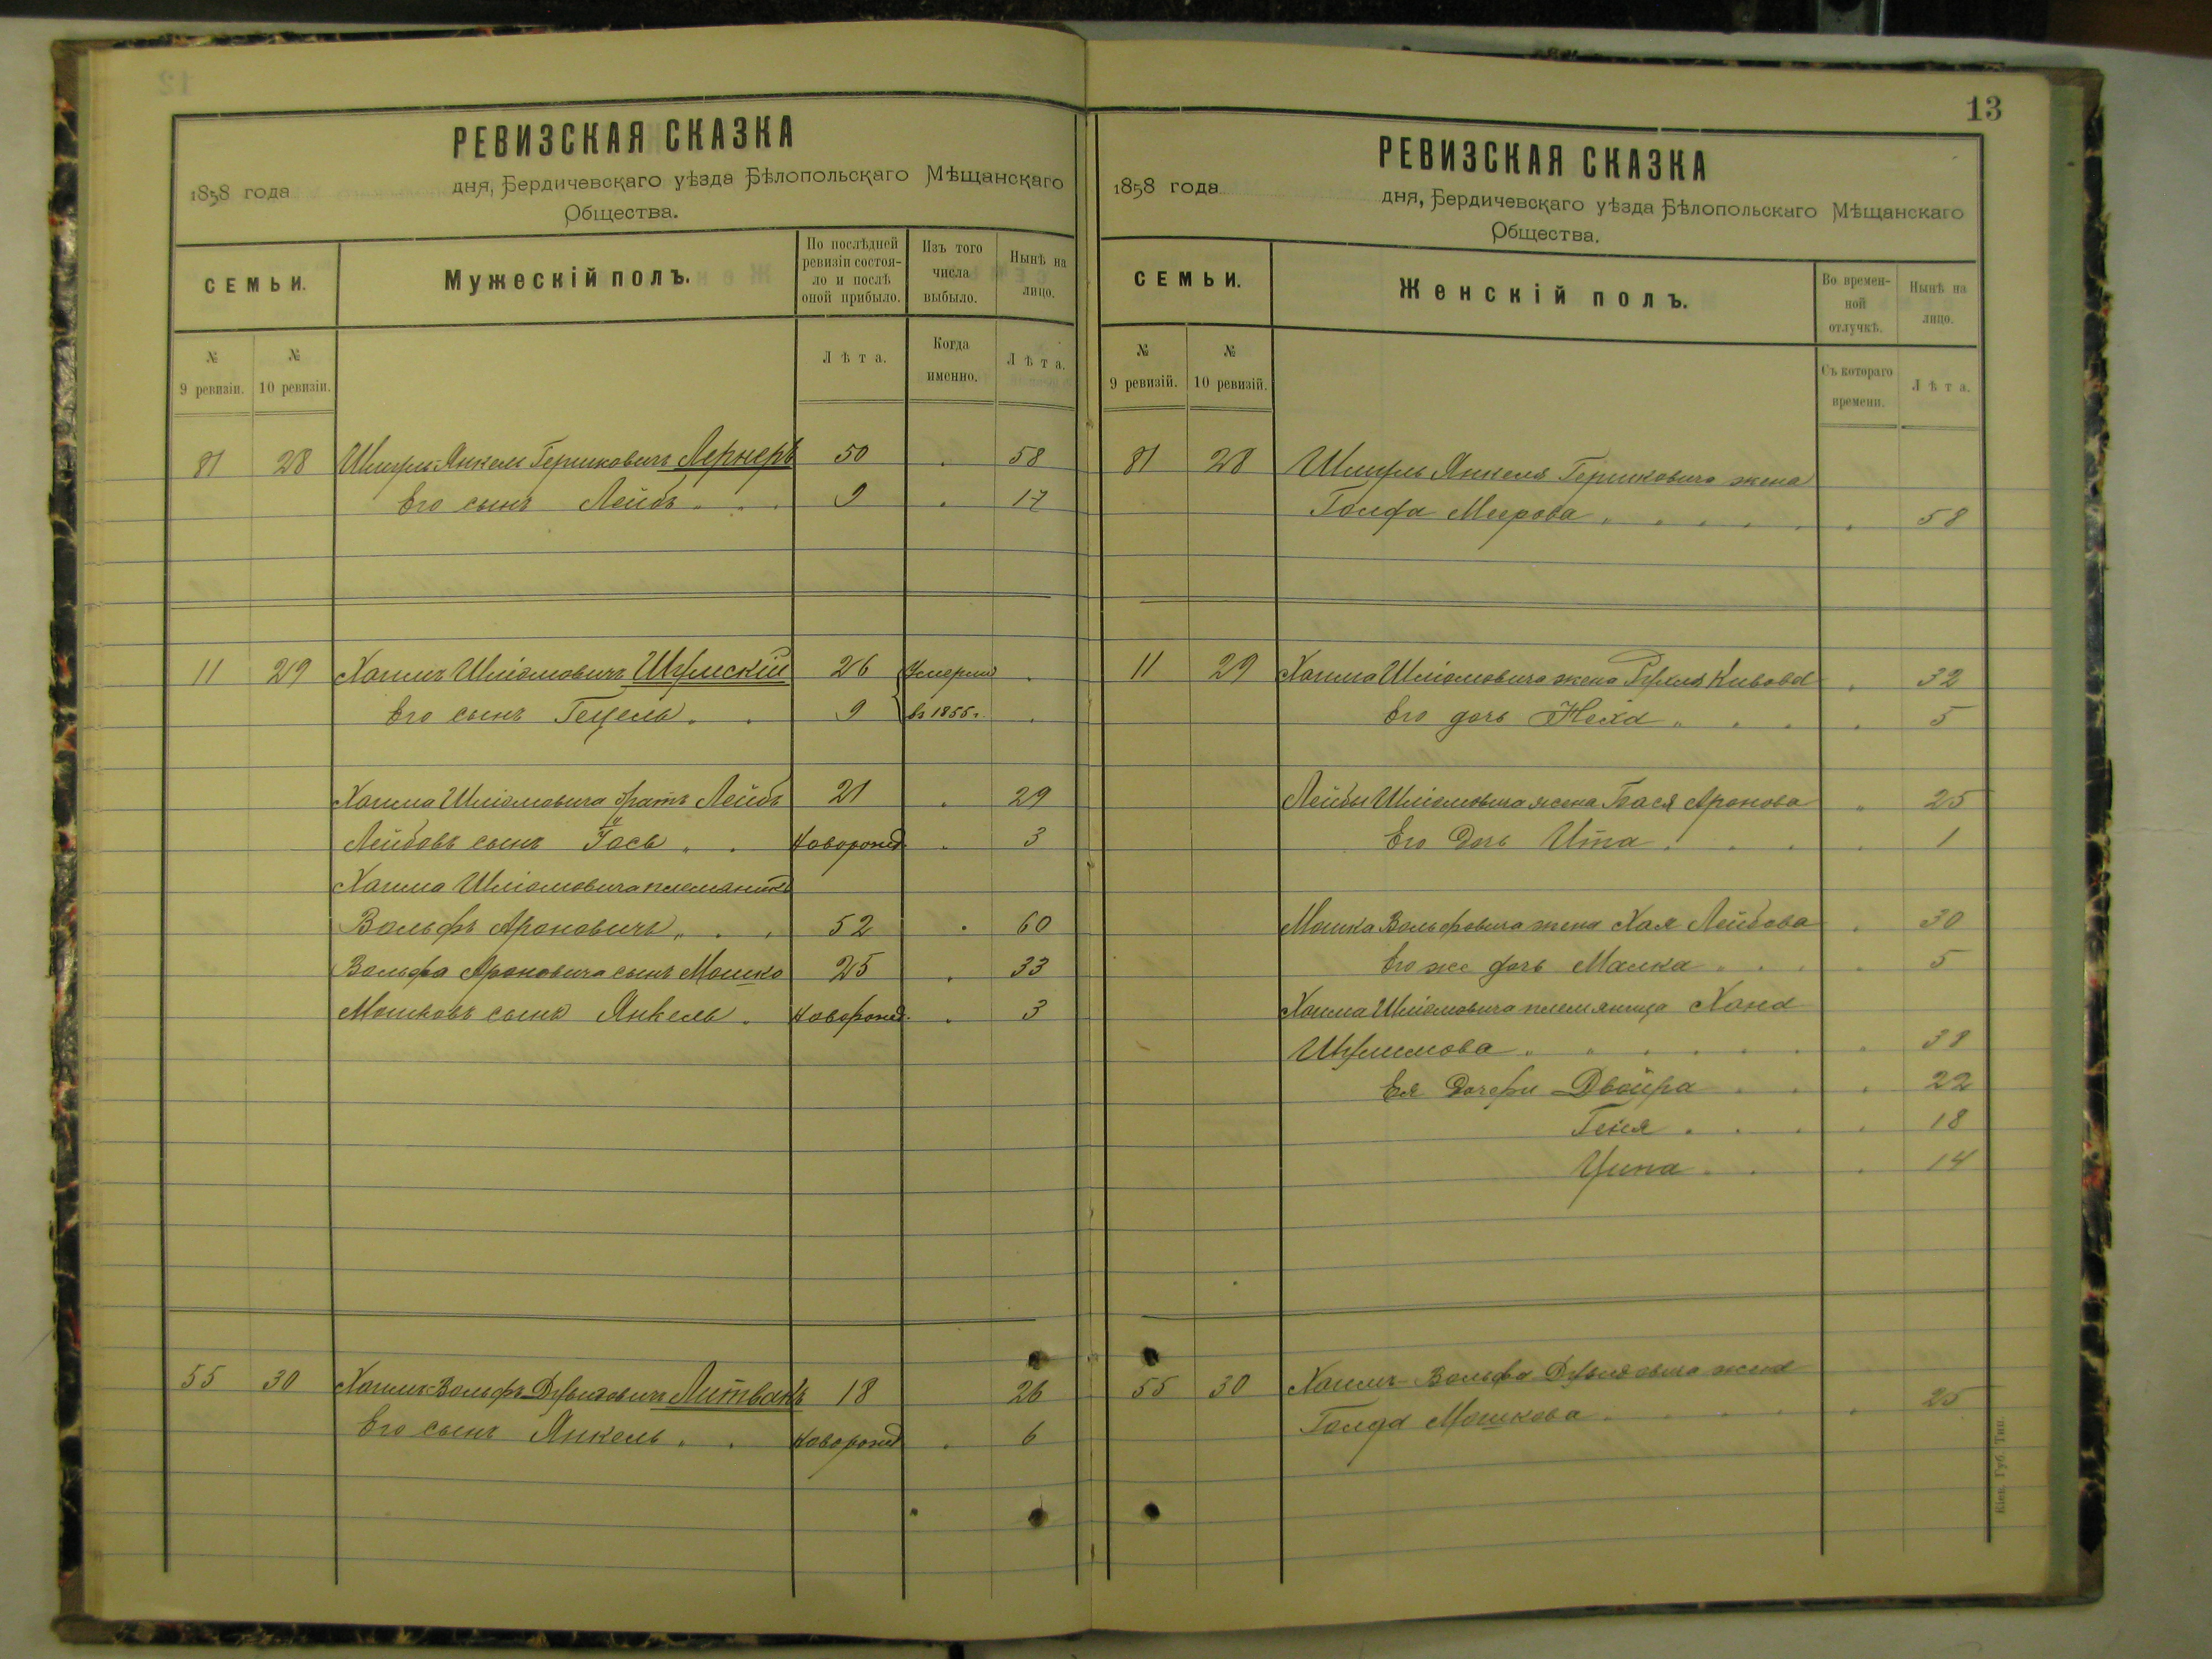 РЕВИЗСКАЯ СКАЗКА
1858 года дня, Бердичевскаго уѣзда Бѣлопольскаго Мѣщанскаго
Общества.
СЕМЬИ.
Мужескій полъ.
По послѣдней ревизіи состояло и послѣ оной прибыло.
Изъ того числа выбыло.
Нынѣ на лицо.
№ 9 ревизіи.
№ 10 ревизіи.
Лѣта.
Когда именно.
Лѣта.
81 28 Шмуль-Янкель Гершковичъ Лернеръ 50 58
Его сынъ Лейбъ 9 17
11 29 Хаимъ Шліомовичъ Шумскій 26 Умерши
Его сынъ Гецель 9 въ 1855 г.
Хаима Шліомовича братъ Лейбъ 21 29
Лейбовъ сынъ Іось новорожд. 3
Хаима Шліомовича племянникъ
Вольфъ Ароновичъ 52 60
Вольфа Ароновича сынъ Мошко 25 33
Мошковъ сынъ Янкель новорожд. 3
55 30 Хаимъ-Вольфъ Дувидовичъ Литвакъ 18 26
Его сынъ Янкель новорожд. 6
13
РЕВИЗСКАЯ СКАЗКА
1858 года дня, Бердичевскаго уѣзда Бѣлопольскаго Мѣщанскаго
Общества.
СЕМЬИ.
Женскій полъ.
Во временной отлучкѣ.
Нынѣ на лицо.
№ 9 ревизій.
№ 10 ревизій.
Съ котораго времени.
Лѣта.
81 28 Шмуль Янкеля Гершковича жена
Голда Меерова 58
11 29 Хаима Шліомовича жена Рухля Кивова 32
Его дочь Неха 5
Лейбы Шліомовича жена Бася Аронова 25
Его дочь Ита 1
Мошка Вольфовича жена Хая Лейбова 30
Его же дочь Малка 5
Хаима Шліомовича племянница Хана
38
Ея дочери Двойра 22
Геня 18
Ципа 14
55 30 Хаимъ-Вольфа Дувидовича жена
Голда Мошкова 25
Кіев. Губ. Тип.